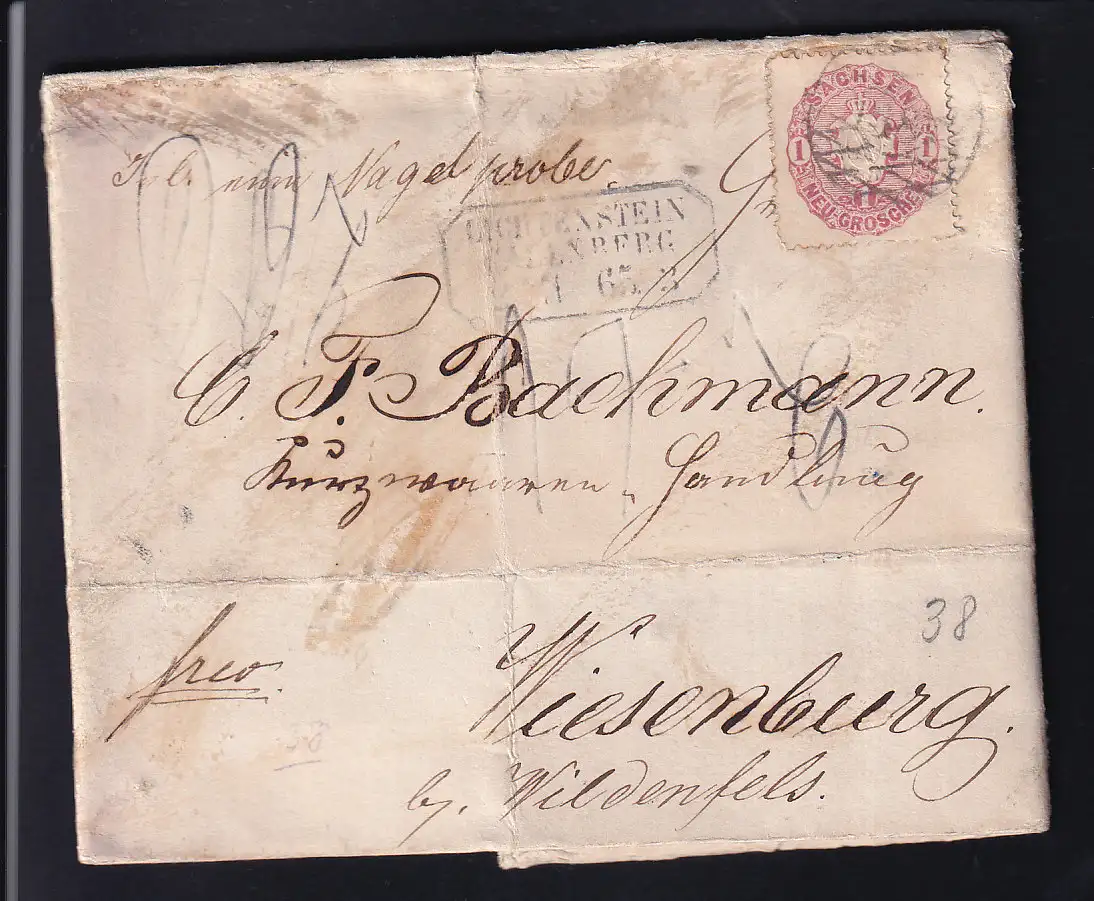 SACHSEN
1 1
NEU-GROSCHEN
Nagel probe
LICHTENSTEIN
65. 3
C. F. Bachmann.
Kurzwaaren-Handlung
38
frco
Wiesenburg.
b/. Wildenfels.